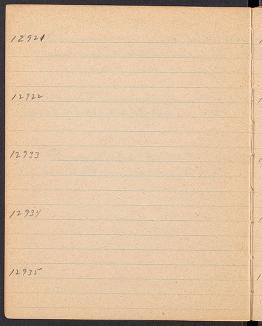 12921
12922
12933
12934
12935